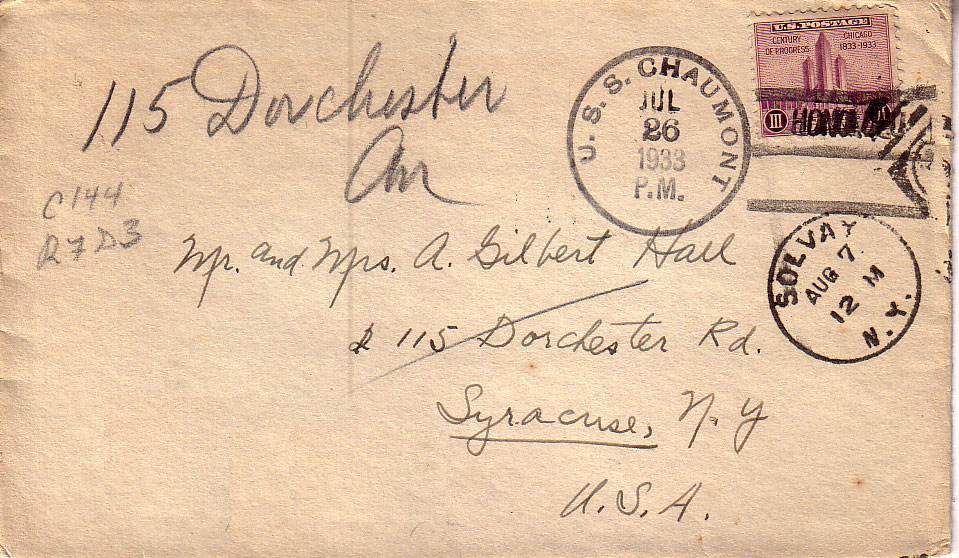 U.S. POSTAGE
CENTURY OF PROGRESS
CHICAGO 1833-1933
III
HONO
U. S. S. CHAUMONT
JUL
26
1933
P.M.
115 Dorchester
Av
C144
R7D3
Mr. and Mrs. A. Gilbert Hall
115 Dorchester Rd.
Syracuse, N.Y
U.S.A.
SOLVAY
AUG 7
12 M
N.Y.